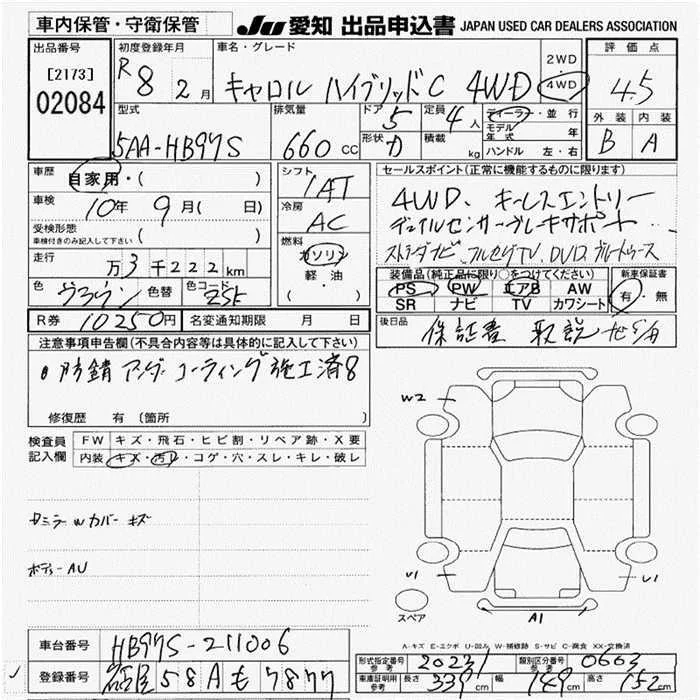 車内保管・守衛保管
JU 愛知 出品申込書 JAPAN USED CAR DEALERS ASSOCIATION
出品番号 初度登録年月 車名・グレード 評価点
[2173]
02084
R 8年 2月 キャロル ハイブリッドC 4WD
2WD
4WD
4.5
型式 排気量 ドア 定員 ディーラー・並行
5AA-HB97S 660cc 5 4人
モデル年式 年
形状 積載 kg ハンドル 左・右
外装 内装
B A
車歴 自家用・( )
車検 10年 9月( 日)
受検形態 ( )
車検付きのみ記入して下さい
走行 万 3千222km
色 ブラウン 色替 色コード ZSE
シフト IAT
冷房 AC
燃料 ガソリン
軽・油
( ・ )
セールスポイント(正常に機能するものに限ります)
4WD、キーレスエントリー
デュアルセンサーブレーキサポート
ストラーダナビ、フルセグTV、DVD、ブルートゥース
装備品(純正品に限り○をつけてください) 新車保証書
PS PW エアB AW
SR ナビ TV カワシート
有・無
R券 10250円 名変通知期限 月 日
後日品 保証書 取説 ナビ
注意事項申告欄(不具合内容等は具体的に記入して下さい)
防錆アンダーコーティング施工済
修復歴 有 〔箇所 〕
検査員記入欄
FW キズ・飛石・ヒビ割・リペア跡・X要
内装 キズ・汚レ・コゲ・穴・スレ・キレ・破レ
ミラーwカバー キズ
ボディーAU
W2
U1
U1
A1
スペア
A-キズ E-エクボ U-凹ル W-補修跡 S-サビ C-腐食 XX-交換済
車台番号 HB97S-211006
登録番号 名古屋 58A も 7877
型式指定番号 参考 20231 類別区分番号 参考 0663
車庫証明用 参考 長さ 339cm 幅 149cm 高さ 152cm